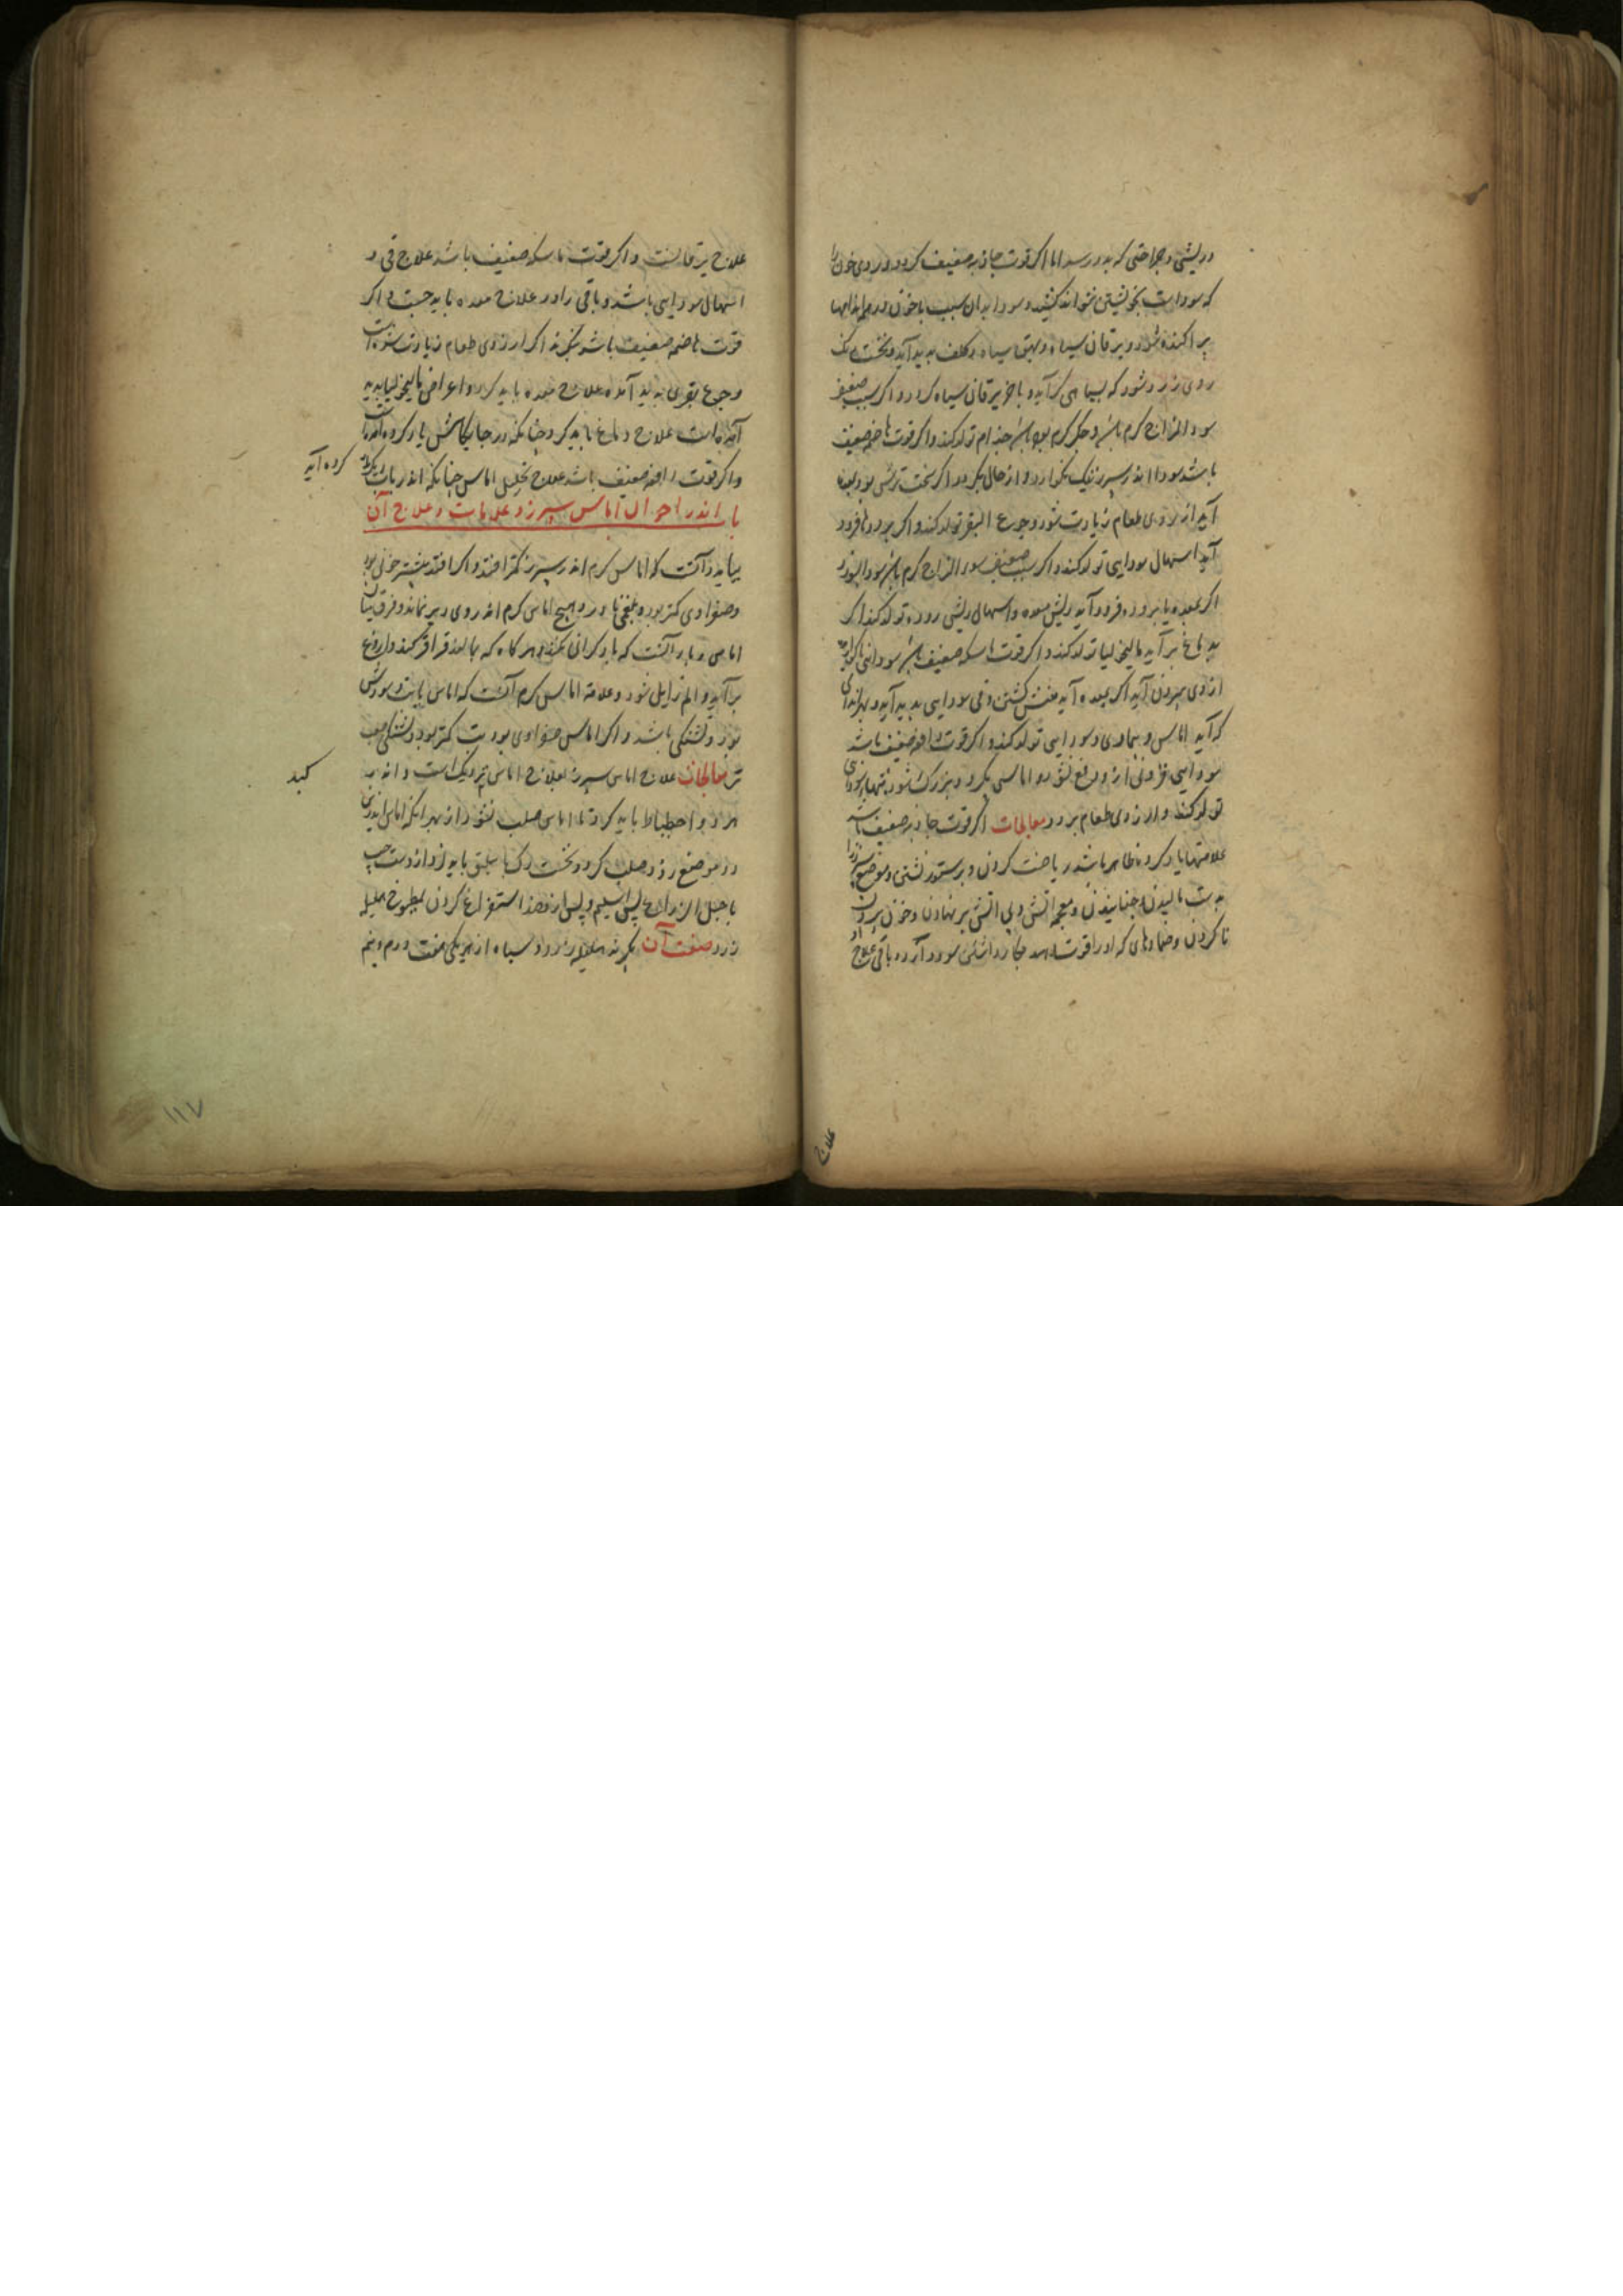 وریشی و جراحتی که بدو رسد اما اکر قوت جاذبه ضعیف کردد و دردی خون را
که سوداست بخویشتن نتواند کشید و سودا بدان سبب با خون در همه اندامها
پراکنده شود و یرقان سیاه و بهق سیاه و کلف پدید آید و نخست رنک
روی زرد شود که بسیاهی کراید و باخر یرقان سیاه کردد و اکر سبب ضعیفی
سوء المزاج کرم باشد و جکر کرم بود جذام تولد کند و اکر قوت هاضمه ضعیف
باشد سودا اندر سپرز نیک نکوارد و از حال بکردد اکر سخت ترش بود بمعده
آید ارزوی طعام زیادت شود و جوع البقر تولد کند و اکر برودها فرود
آید اسهال سودایی تولد کند و اکر سبب ضعیفی سوء المزاج کرم باشد سودا بسوزد
اکر بمعده یا برودە فرود آید ریش معده و اسهال ریش روده تولد کند اکر
بدماغ بر آید مالیخولیا تولد کند و اکر قوت ماسکه ضعیف باشد سودا
از وی بیرون آید اکر بمعده آید منش کشتن و قی سودایی پدید آید و بهر اندامی
که آید اماس و بیماری سودایی تولد کند و اکر قوت دافعه ضعیف باشد
سودایی فزونی از و دفع نشود و اماسی بکیرد و بزرک شود و تبهاء سودایی
تولد کند و ارزوی طعام برود معالجات اکر قوت جاذبه ضعیف باشد
علامتها یاد کرده ظاهر باشد ریاضت کردن و بر ستور نشستن و موضع سپرز را
بدست مالیدن و جنبانیدن و محجمه اتش و بی اتش بر نهادن و خون بیرون
نا کردن و ضمادهای که او را قوت دهد بکار داشتن سود دارد و باقی علاج او
علاج
علاج یرقانست و اکر قوت ماسکه ضعیف باشد علاج قی و
اسهال سودایی باشد و باقی را در علاج معده باید جست و اکر
قوت هاضمه ضعیف باشد بنکرند اکر ارزوی طعام زیادت شودست
و جوع بقری پدید آمده علاج معده باید کرد و اعراض مالیخولیا پدید
آمده است علاج دماغ باید کرد چنانکه در جایکاهش یاد کرده آمدست
و اکر قوت دافعه ضعیف باشد علاج تحلیل اماس چنانکه اندر باب دیکر یاد
کرده آید
باب اندر احوال اماس سپرز و علامات و علاج آن
بباید دانست که اماس کرم اندر سپرز کمتر افتد و اکر افتد بیشتر خونی بود
و صفراوی کمتر بود و بلغمی نادر و هیچ اماس کرم اندر وی دیر نماند و فرق میان
اماس و باد آنست که باد کرانی نکند و هر کاه که بمالند قراقر کند و اروغ
برآید و الم زایل شود و علامت اماس کرم آنست که اماس باتب و سوزش
بود و تشنکی باشد و اکر اماس صفراوی بود تب کمتر بود و تشنکی صعب
تر معالجات علاج اماس سپرز بعلاج اماس نزدیک است و اندر
کبد
هر دو احتیاط باید کرد تا اماس صلب نشود از بهر انکه اماس اندرین
دو موضع زود صلب کردد و نخست رک باسلیق باید زد از دست چپ
یا حبل الذراع پس اسیلم و پس از فصد استفراغ کردن بمطبوخ هلیله
زرد صفت آن بکیرند هلیله زرد و سیاه از هر یکی هفت درم و نیم
۱۱۷